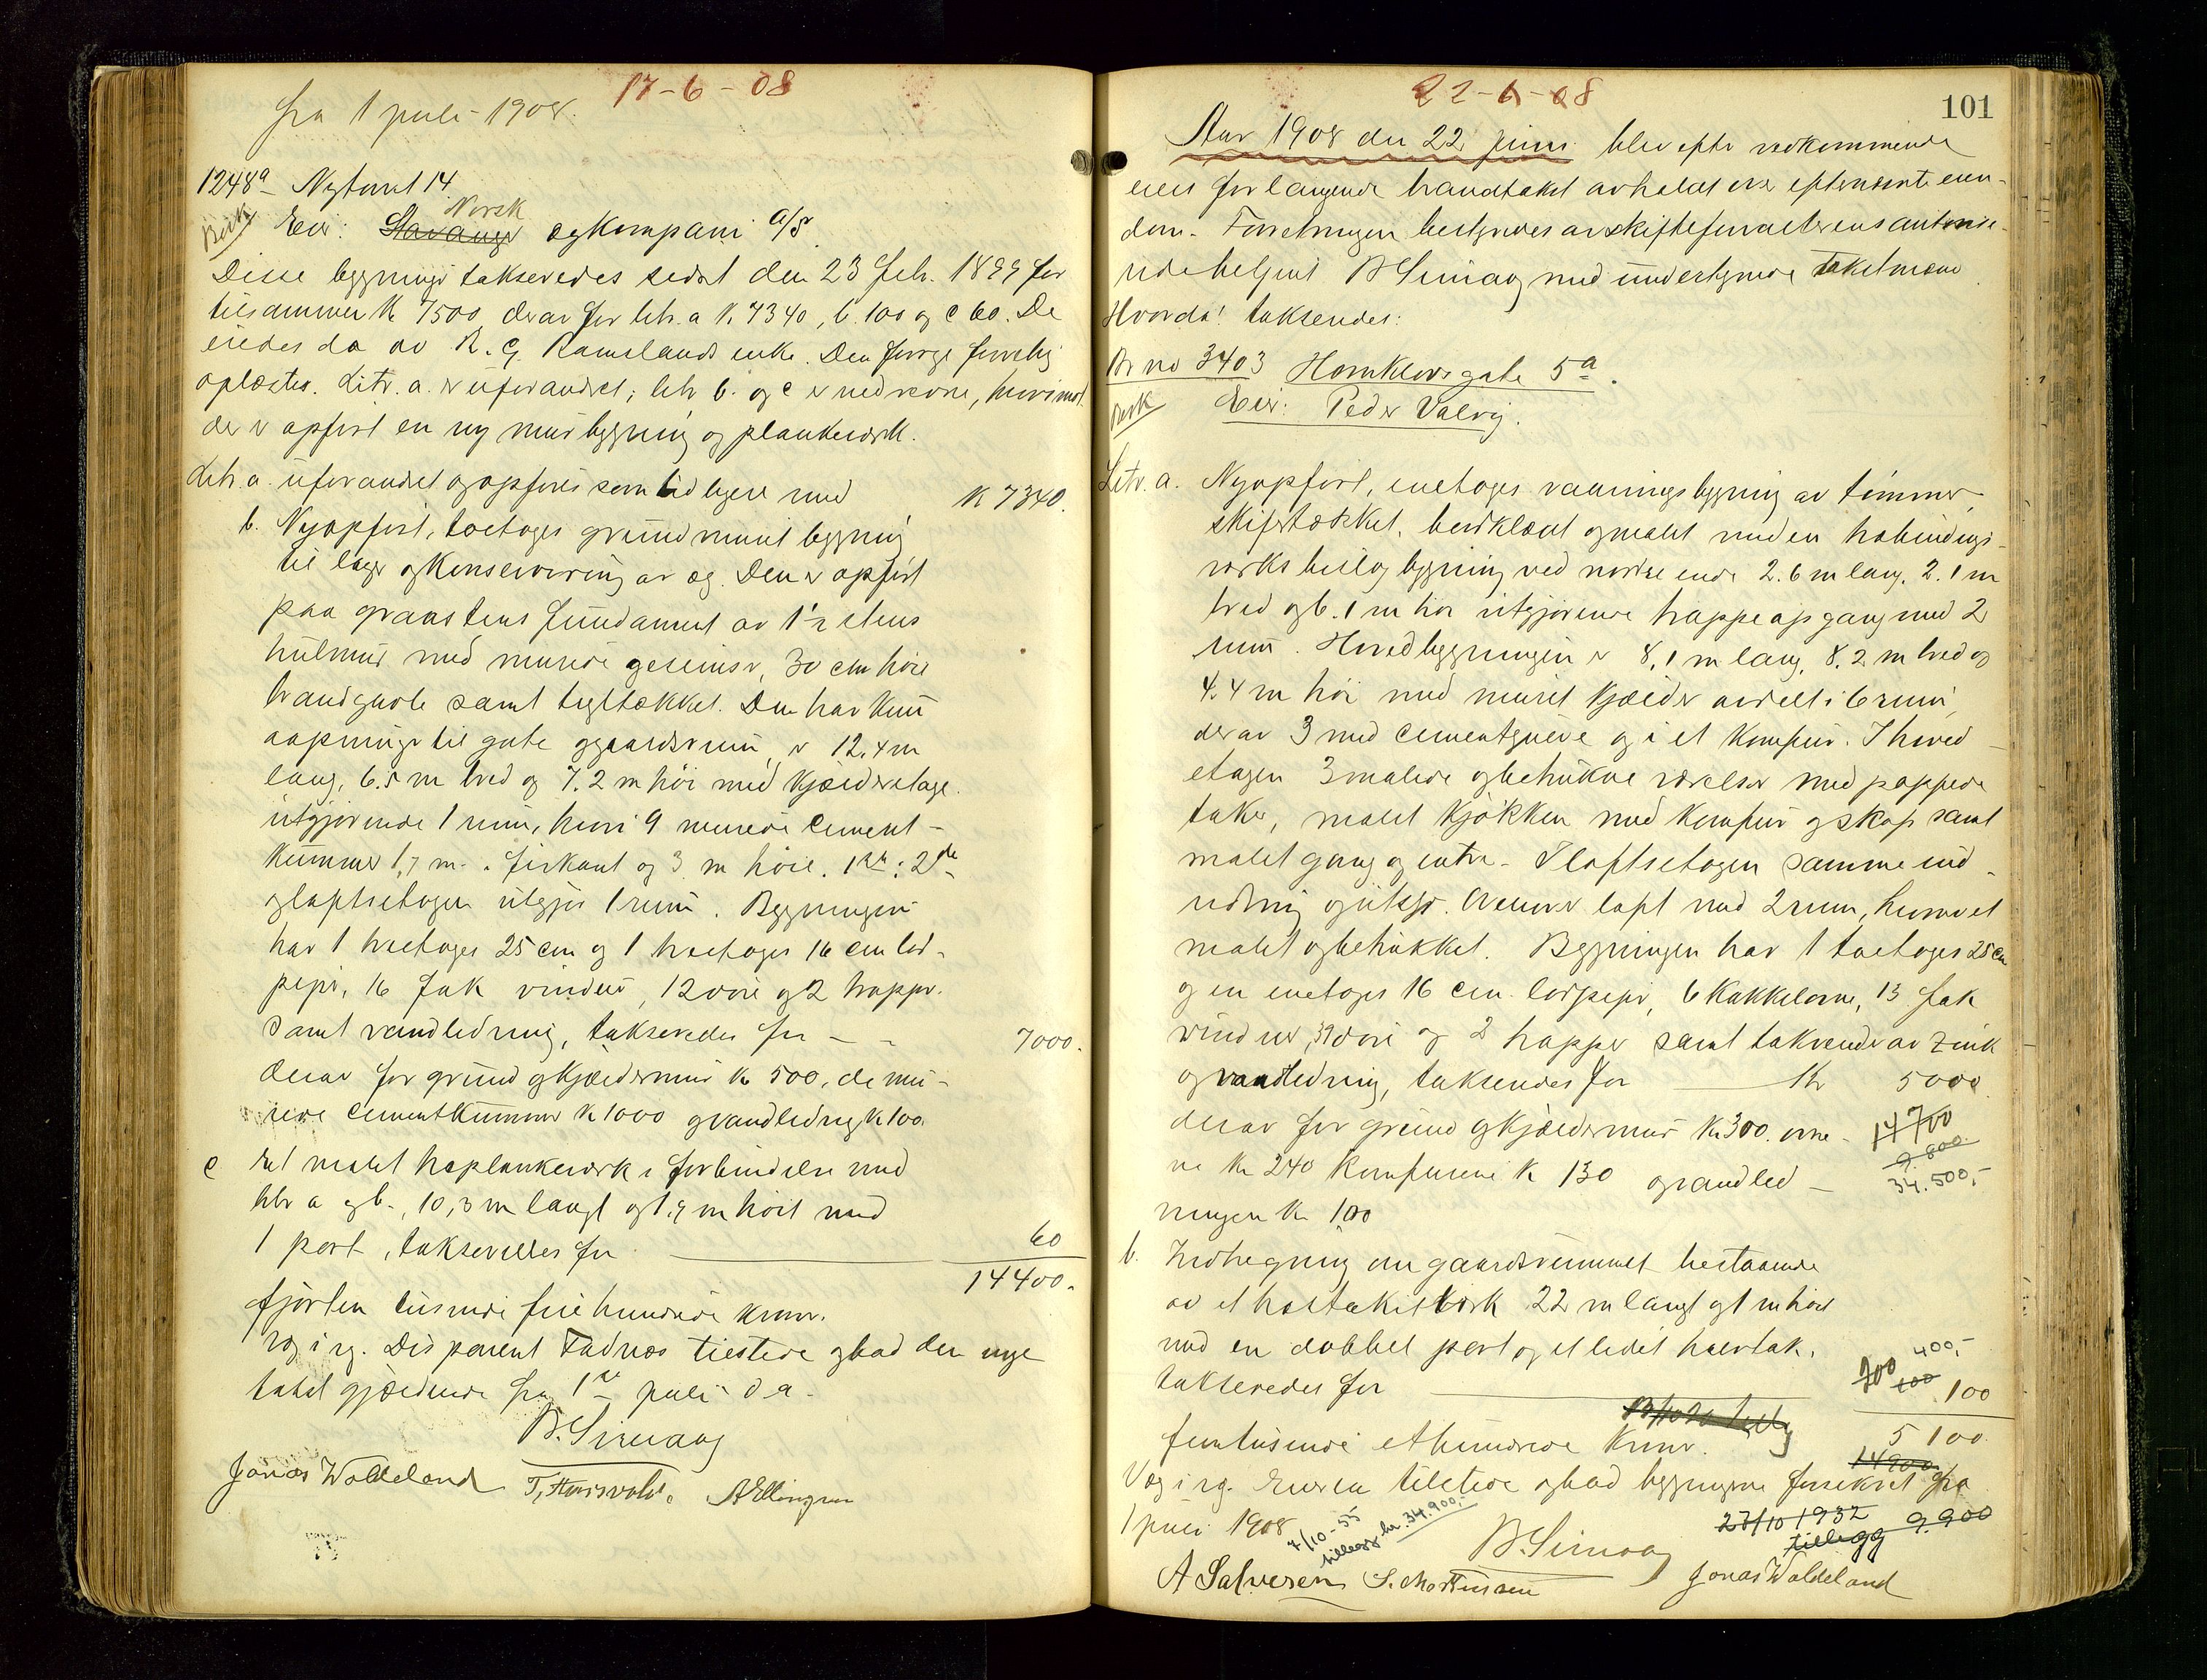 17-6-08
fra 1 juli 1908.
1248a Nytorvet 14
Bork Eier: Stavanger Norsk ægkompani a/s.
Disse bygninger takseredes sidst den 23 febr. 1899 for
tilsammen K 7500, derav for litr. a K. 7340, b. 100 og c 60. De
eiedes da av R. G. Ramslands enke. Den forrige forretng
oplæstes. Litr. a. er uforandret; litr b. og c er nedrevne, hvorimot
der er opført en ny murbygning og plankeværk.
Litr. a. uforandret og opføres som tidligere med K 7340.
b. Nyopført, toetages grundmuret bygning
til lager og konservering av æg. Den er opført
paa graastens fundament av 1½ stens
hulmur med murede gesimser, 30 cm høie
brandgavle samt tegltækket. Den har kun
aapninger til gate og gaardsrum, er 12,4 m
lang, 6.5 m bred og 7.2 m høi med kjælderetage
utgjørende 1 rum, hvori 9 murede cement-
kummer 1,7 m. i firkant og 3 m høie. 1ste, 2den
og loftsetagen utgjør 1 rum. Bygningen
har 1 treetages 25 cm og 1 treetages 16 cm lod-
pipe, 16 fak vinduer, 12 døre og 2 trapper
samt vandledning, takseredes for - - 7000.
derav for grund og kjældermur K 500, de mu-
rede cementkummer K 1000 og vandledng K 100.
c Et malet træplankeværk i forbindelse med
litr a og b., 10,3 m langt og 1,9 m høit med
1 port, takseredes for 60
14400.
fjorten tusinde fire hundrede kroner.
Veg i rg. Disponent Fadnæs tilstede og bad den nye
takst gjældende fra 1ste juli d. a.
B. Simaog
Jonas Woldeland T. Haarsvold. A Ellingsen
22-6-08
101
Aar 1908 den 22 juni blev efter vedkommende
eiers forlangende brandtakst avholdt over efternævnte eien-
dom. Forretningen bestyredes av skifteforvalterens autorise-
rede helper B Simaog med undertegnede takstmænd
Hvorda! takseredes:
Br no 3403 Hornklovsgate 5a.
Bork Eier: Peder Valvig.
Litr. a. Nyopført, enetages vaaningsbygning av tømmer,
skifertækket, bordklædt og malet med en halvbindings-
verks tilbygning ved nordre ende 2.6 m lang, 2.1 m
bred og 6.1 m høi utgjørende trappeopgang med 2
rum. Hovedbygningen er 8,1 m lang, 8.2 m bred og
4.4 m høi med muret kjælder avdelt i 6 rum,
derav 3 med cementgulve og i et komfur. I hoved-
etagen 3 malede og betrukne værelser med pappede
taker, malet kjøkken med komfur og skap samt
malet gang og entre. I loftsetagen samme ind-
redning og utstyr. Øverst er loft med 2 rum, hvorav et
malet og betrukket. Bygningen har 1 toetages 25 cm
og en enetages 16 cm lodpipe, 6 kakkelovne, 13 fak
vinduer, 19 døre og 2 trapper samt takrender av zink
og vandledning, takseredes for Kr 5000
derav for grund og kjældermur K. 300. ovne- 14700
ne K 240 komfurene K 130 og vandled- 9.800.
34.500,-
ningen K 100
b. Indhegning om gaardsrummet bestaaende
av et træstakitværk 22 m langt og 1 m høit
med en dobbel port og et lidet halvtak,
takseredes for 400,- 200 100 100
femtusinde et hundrede kroner. 5 100
14900
Veg i rg. Eieren tilstede og bad bygningene forsikret fra
1 juli 1908
7/10-55 tillegg kr. 34.900,-
27/10 1932 9.900
tillegg
B. Simaog
A Salvesen S. Mortensen Jonas Woldeland